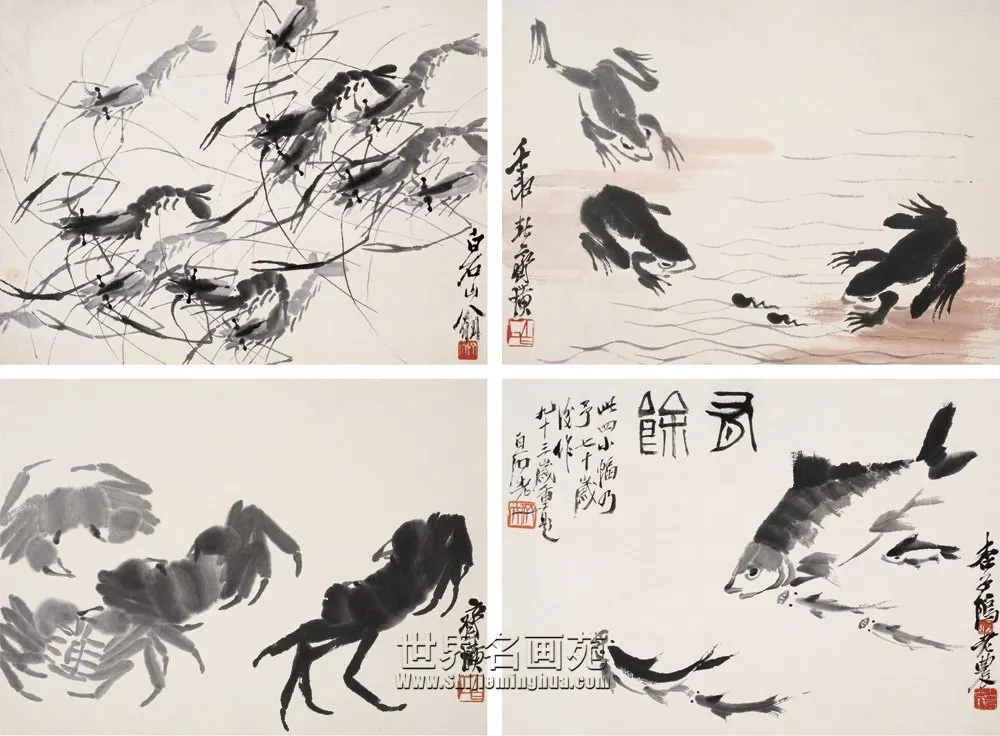 白石山翁
壬申
齊璜
齊璜
有餘
此四小幅乃
予七十歲
後作
九十三歲重題
白石老
杏子隖老農
世界名画苑
www.Shijieminghua.com